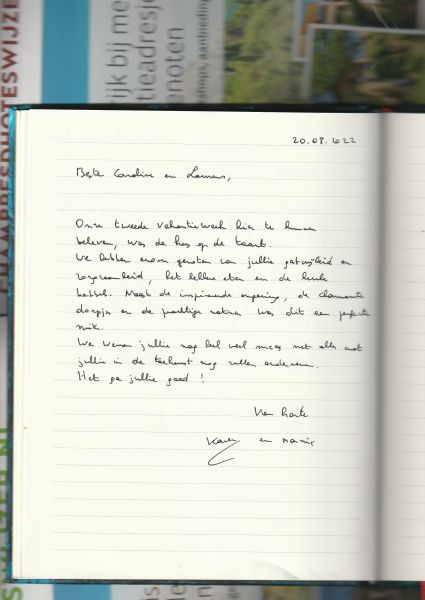 ijk bij me
tieadresje
noten
shops, aanbieding
20.08.2022
Beste Caroline en Lourens,
Onze tweede vakantieweek hier te kunnen
beleven, was de kers op de taart.
We hebben enorm genoten van jullie gastvrijheid en
zorgzaamheid, het lekkere eten en de leuke
babbels. Naast de inspirerende omgeving, de charmante
dorpjes en de prachtige natuur was dit een perfecte
mix.
We wensen jullie nog heel veel succes met alles wat
jullie in de toekomst nog zullen ondernemen.
Het ga jullie goed !
Van harte
Karen en Marnix